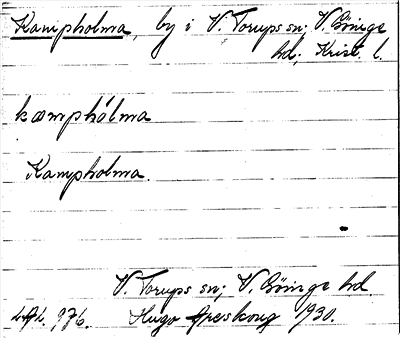 Kampholma, by i V. Torups sn; V. Göinge
hd, Krist. l.
kæmphólma
Kampholma.
V. Torups sn; V. Göinge hd.
976. Hugo Areskoug 1930.